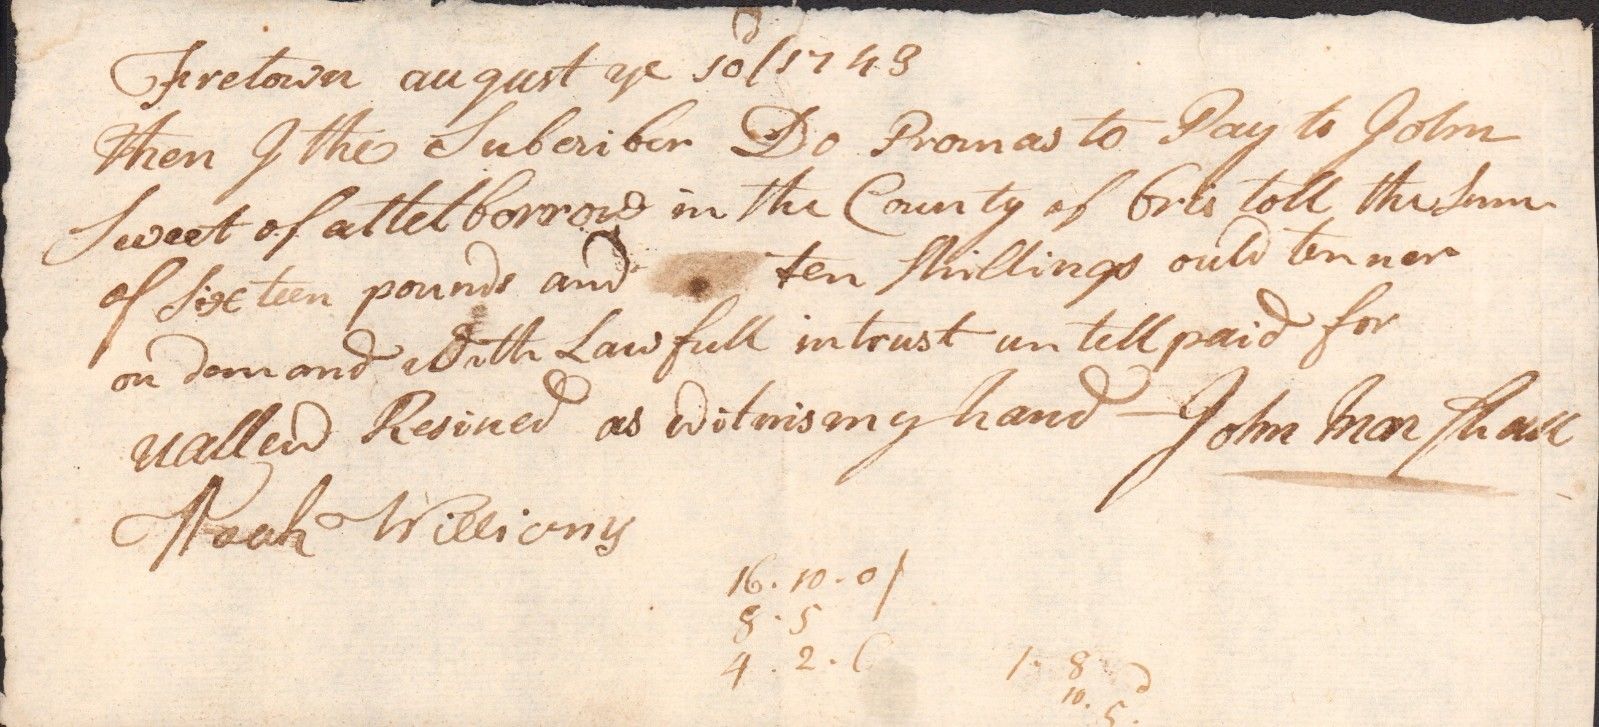 Fretown august ye 10d/1743
then I the Subcriber Do Promas to Pay to John
Sweet of attelborrow in the County of bristoll the Sum
of Sixteen pounds and ten Shillings ould tenner
on demand with Lawfull intrust untell paid for
vallew Resived as witnis my hand — John Marshall
Noah Williams
16 . 10 . 0/
8 . 5
4 . 2 . 6
1 . 8
10 . 5d